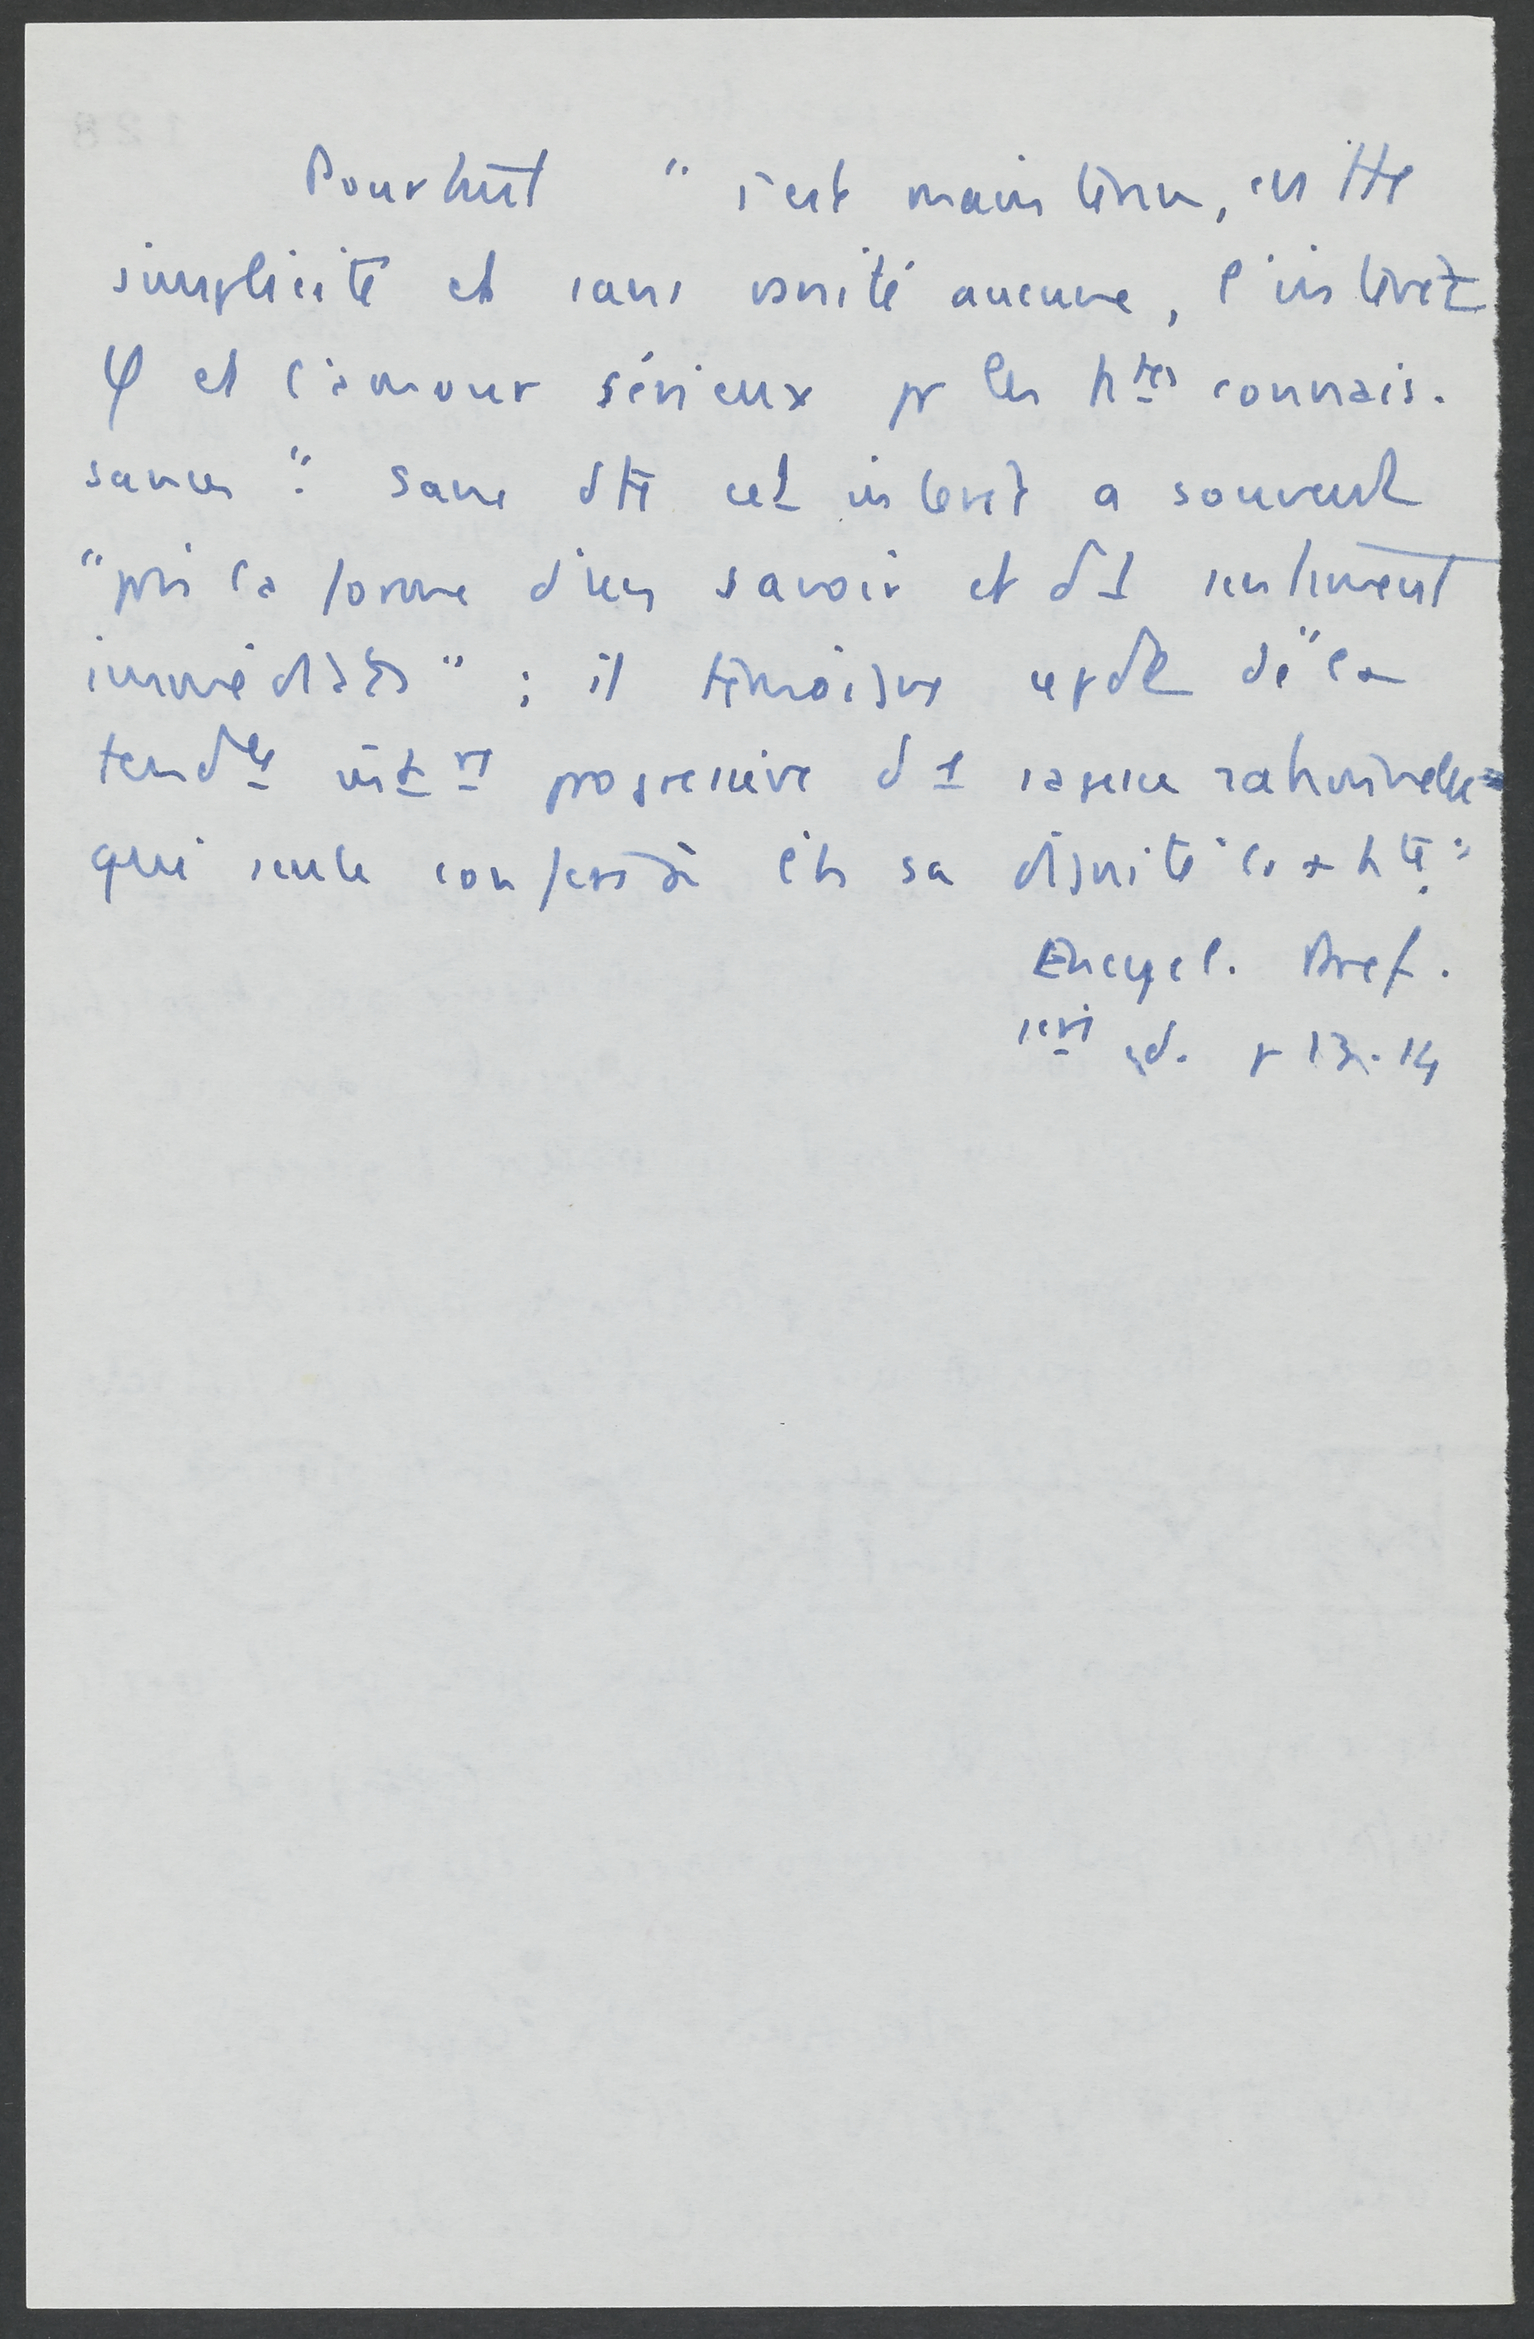 Pourtant " s'est maintenu, en tte
simplicité et sans vanité aucune, l'intérêt
φ et l'amour sérieux pr les htes connais-
sances". Sans dte cet intérêt a souvent
"pris la forme d'un savoir et d'1 sentiment
immédiats" ; il témoigne cepdt de "la
progressive d'1 rationnelle
qui seule à l'h sa dignité
Encycl. Pref.
1ere ed. p 13-14